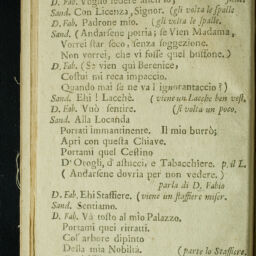 D. Fab. Voglio sedere anch' io,
Sand. Con Licenza, Signor. (gli volta le spalle
D. Fab. Padrone mio. (gli volta le spalle.
Sand. (Andarsene potria; se Vien Madama,
Vorrei star seco, senza soggezione.
Non vorrei, che vi fosse quel buffone.)
D. Fab. (Se vien quì Berenice,
Costui mi reca impaccio.
Quando mai se ne va l' ignorantaccio?)
Sand. Ehi! Lacchè. (viene un Lacchè ben vest.
D. Fab. Vuò sentire. (si volta un poco.
Sand. Alla Locanda
Portati immantinente. Il mio burrò;
Apri con questa Chiave.
Portami quel Cestino
D' Orogli, d' astucci, e Tabacchiere. p. il L.
(Andarsene dovria per non vedere.)
parla di D. Fabio
D. Fab. Ehi Staffiere. (viene un staffiere miser.
Sand. Sentiamo.
D. Fab. Và tosto al mio Palazzo.
Portami quei ritratti.
Cos' arbore dipinto
Della mia Nobiltà. (parte lo Staffiero,